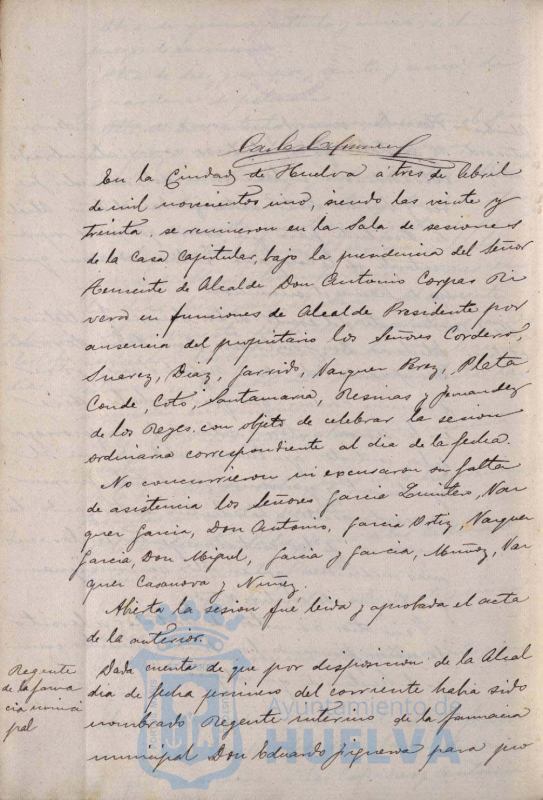 En la Ciudad de Huelva a tres de Abril
de mil novecientos uno, siendo las veinte y
treinta, se reunieron en la Sala de sesiones
de la casa capitular, bajo la presidencia del Señor
Teniente de Alcalde Don Antonio Corpas Ri
vero en funciones de Alcalde Presidente por
ausencia del propietario los Señores Cordero,
Suarez, Diaz, Garrido, Vazquez Perez, Plata
Conde, Coto, Santamaria, Resinas y Fernandez
de los Reyes, con objeto de celebrar la sesion
ordinaria correspondiente al dia de la fecha.
No concurrieron ni excusaron su falta
de asistencia los Señores Garcia Quintero, Vaz
quez Garcia, Don Antonio, Garcia Ortiz, Vazquez
Garcia, Don Miguel, Garcia y Garcia, Muñoz, Vaz
quez Casanova y Nuñez.
Abierta la sesion fué leida y aprobada el acta
de la anterior.
Regente
de la farma
cia munici
pal
Dada cuenta de que por disposicion de la Alcal
dia de fecha primero del corriente habia sido
nombrado Regente interino de la farmacia
municipal Don Eduardo Figueroa para pro
Ayuntamiento de
HUELVA